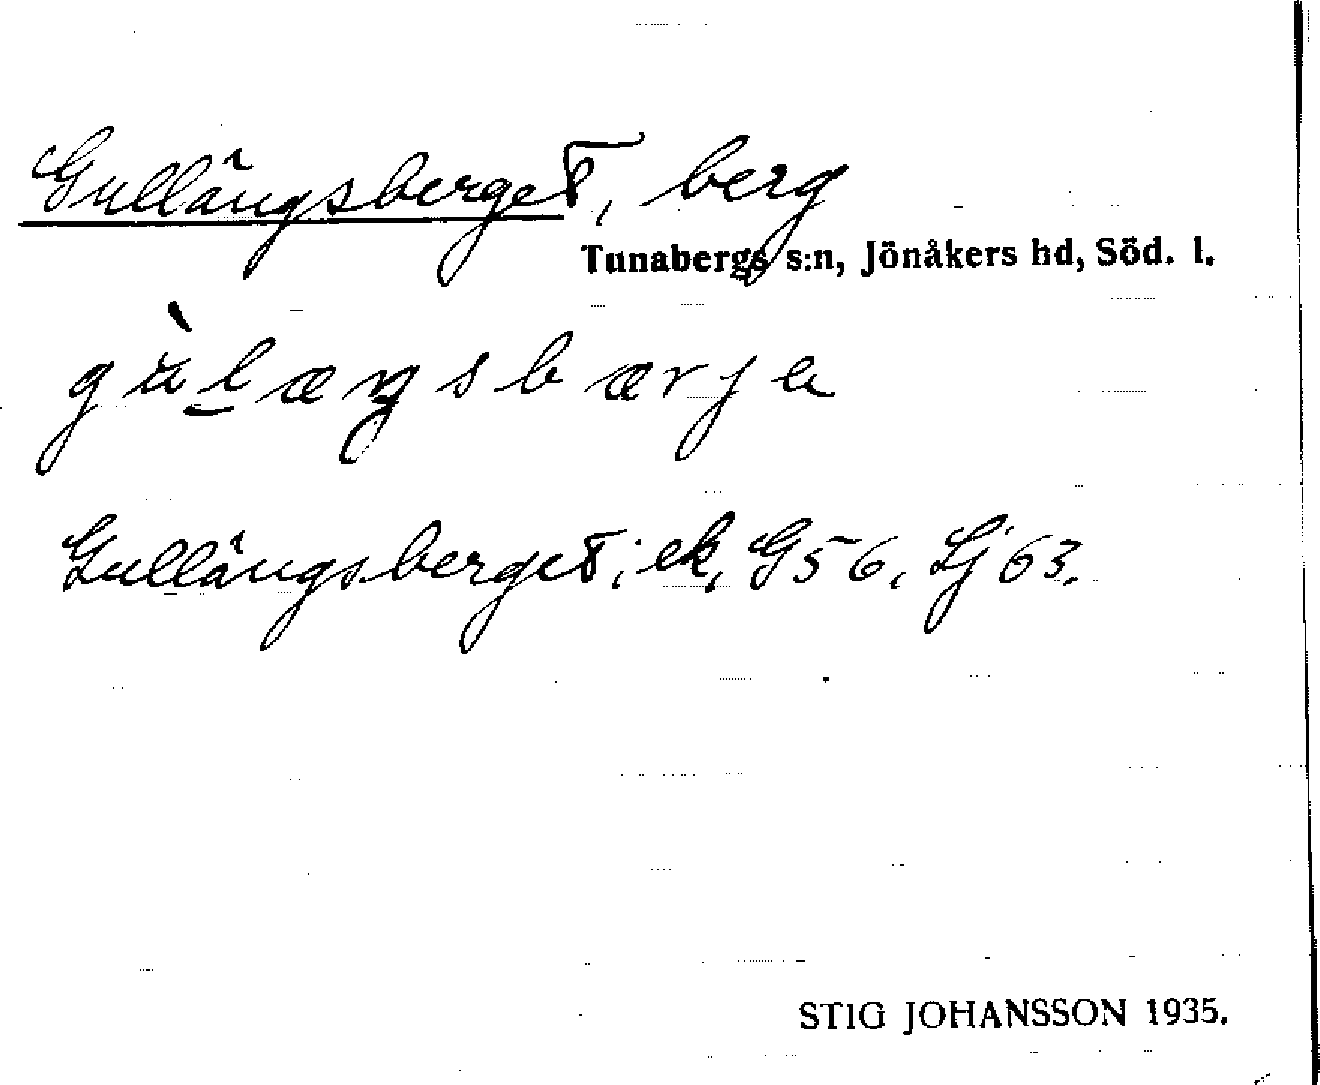 Gullängsberget, berg
Tunabergs s:n, Jönåkers hd, Söd. l.
gùl̲æŋsbærja
Gullängsberget; ek, G56, Lj 63.
STIG JOHANSSON 1935.